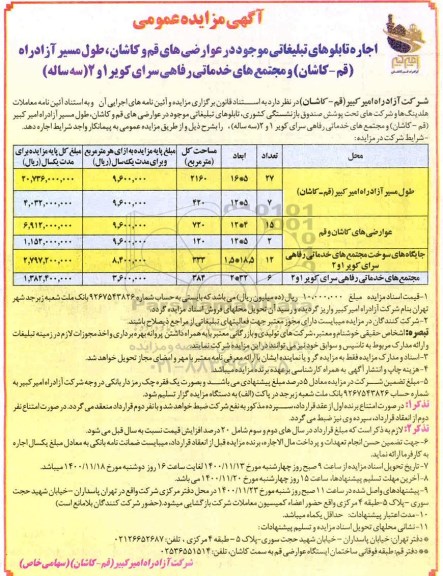 آگهی مزایده عمومی
اجاره تابلوهای تبلیغاتی موجود در عوارضی های قم و کاشان، طول مسیر آزادراه
(قم - کاشان) و مجتمع های خدماتی رفاهی سرای کویر ۱ و ۲ (سه ساله)
شرکت آزادراه امیرکبیر (قم - کاشان) در نظر دارد به استناد قانون برگزاری مزایده و آئین نامه های اجرایی آن و به استناد آئین نامه معاملات
هلدینگ‌ها و شرکت های تحت پوشش صندوق بازنشستگی کشوری، تابلوهای تبلیغاتی موجود در عوارضی های قم و کاشان، طول مسیر آزادراه امیرکبیر
(قم - کاشان) و مجتمع های خدماتی رفاهی سرای کویر ۱ و ۲ (سه ساله)، را بشرح ذیل و از طریق مزایده عمومی به پیمانکار واجد شرایط اجاره دهد.
- شرایط شرکت در مزایده:
محل تعداد ابعاد مساحت کل (متر مربع) مبلغ پایه مزایده به ازای هر متر مربع و برای مدت یکسال (ریال) مبلغ کل پایه مزایده برای مدت یکسال (ریال)
طول مسیر آزادراه امیرکبیر (قم-کاشان) ۲۷ ۵*۱۶ ۲۱۶۰ ۹,۶۰۰,۰۰۰ ۲۰,۷۳۶,۰۰۰,۰۰۰
۷ ۵*۱۲ ۴۲۰ ۹,۶۰۰,۰۰۰ ۴,۰۳۲,۰۰۰,۰۰۰
عوارضی های کاشان و قم ۱۵ ۴*۱۲ ۷۲۰ ۹,۶۰۰,۰۰۰ ۶,۹۱۲,۰۰۰,۰۰۰
۲ ۵*۱۲ ۱۲۰ ۹,۶۰۰,۰۰۰ ۱,۱۵۲,۰۰۰,۰۰۰
جایگاه‌های سوخت مجتمع های خدماتی رفاهی سرای کویر ۱ و ۲ ۱۲ ۱,۵*۱۸,۵ ۳۳۳ ۸,۴۰۰,۰۰۰ ۲,۷۹۷,۲۰۰,۰۰۰
مجتمع های خدماتی رفاهی سرای کویر ۱ و ۲ ۶ ۲*۳۲ ۳۸۴ ۳,۶۰۰,۰۰۰ ۱,۳۸۲,۴۰۰,۰۰۰
۱- قیمت اسناد مزایده مبلغ ۱۰,۰۰۰,۰۰۰ ریال (ده میلیون ریال) می باشد که بایستی به حساب شماره ۹۲۶۷۵۴۳۸۲۶ بانک ملت شعبه زبرجد شهر
تهران بنام شرکت آزادراه امیرکبیر واریز گردیده و رسید آن تحویل محلهای فروش اسناد مزایده گردد.
۲- شرکت کنندگان در مزایده میبایست دارای مجوز معتبر جهت فعالیتهای تبلیغاتی از مراجع ذیصلاح باشند.
۳- اسناد و مدارک مزایده فقط به مزایده گر و یا نماینده ایشان با ارائه معرفی نامه معتبر با مهر و امضای مجاز تحویل خواهد شد.
۴- هزینه چاپ و انتشار آگهی به همراه کارشناسی بعهده برنده مزایده میباشد.
۵- مبلغ تضمین شرکت در مزایده معادل ۵ درصد مبلغ پیشنهادی می باشد و بصورت یک فقره چک رمز دار بانکی در وجه شرکت آزادراه امیرکبیر به
شماره حساب ۹۲۶۷۵۴۳۸۲۶ بانک ملت شعبه زبرجد در پاکت (الف) به دستگاه مزایده گزار تسلیم شود.
تذکر۱: در صورت امتناع برنده اول از عقد قرارداد، سپرده مذکور به نفع شرکت ضبط خواهد شد و با نفر دوم قرارداد منعقد می گردد. در صورت امتناع نفر
دوم از انعقاد قرارداد، سپرده وی نیز ضبط می گردد.
تذکر۲: لازم به ذکر است که مبلغ قرارداد در سال های دوم و سوم شامل ۲۰ درصد افزایش قیمت نسبت به سال قبل می شود.
۶- جهت تضمین حسن انجام تعهدات و پرداخت مال الاجاره، برنده مزایده قبل از انعقاد قرارداد، میبایست ضمانت نامه بانکی به معادل مبلغ یکسال اجاره
به کارفرما ارائه نماید.
۷- تاریخ تحویل اسناد مزایده از ساعت ۹ صبح روز چهارشنبه مورخ ۱۴۰۰/۱۱/۱۳ لغایت ساعت ۱۶ روز دوشنبه مورخ ۱۴۰۰/۱۱/۱۸ میباشد.
۸- آخرین مهلت تسلیم پیشنهادها، ساعت ۱۵ روز چهارشنبه مورخ ۱۴۰۰/۱۱/۲۰ می باشد.
۹- پیشنهادهای واصل شده در ساعت ۱۱ صبح روز شنبه مورخ ۱۴۰۰/۱۱/۲۳ در محل دفتر مرکزی شرکت واقع در تهران پاسداران - خیابان شهید حجت
سوری - پلاک ۵ - طبقه ۴ مرکزی واقع حضور اعضاء کمیسیون معاملات شرکت بازگشایی میشود. (حضور شرکت کنندگان بلامانع است)
۱۰- مدت اعتبار پیشنهادات: حداقل یکماه میباشد.
۱۱- نشانی محلهای تحویل اسناد مزایده و تسلیم پیشنهادات:
** دفتر تهران: خیابان پاسداران - خیابان شهید حجت سوری - پلاک ۵ - طبقه ۴ مرکزی، تلفن: ۰۲۱۲۶۶۵۲۶۸۷
** دفتر قم: طبقه فوقانی ساختمان ایستگاه عوارضی قم به سمت کاشان، تلفن: ۰۲۵۳۶۵۵۱۵۱۴
شرکت آزادراه امیرکبیر (قم - کاشان) (سهامی خاص)